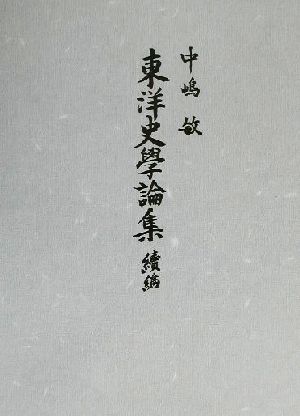 中嶋敏
東洋史學論集 續編